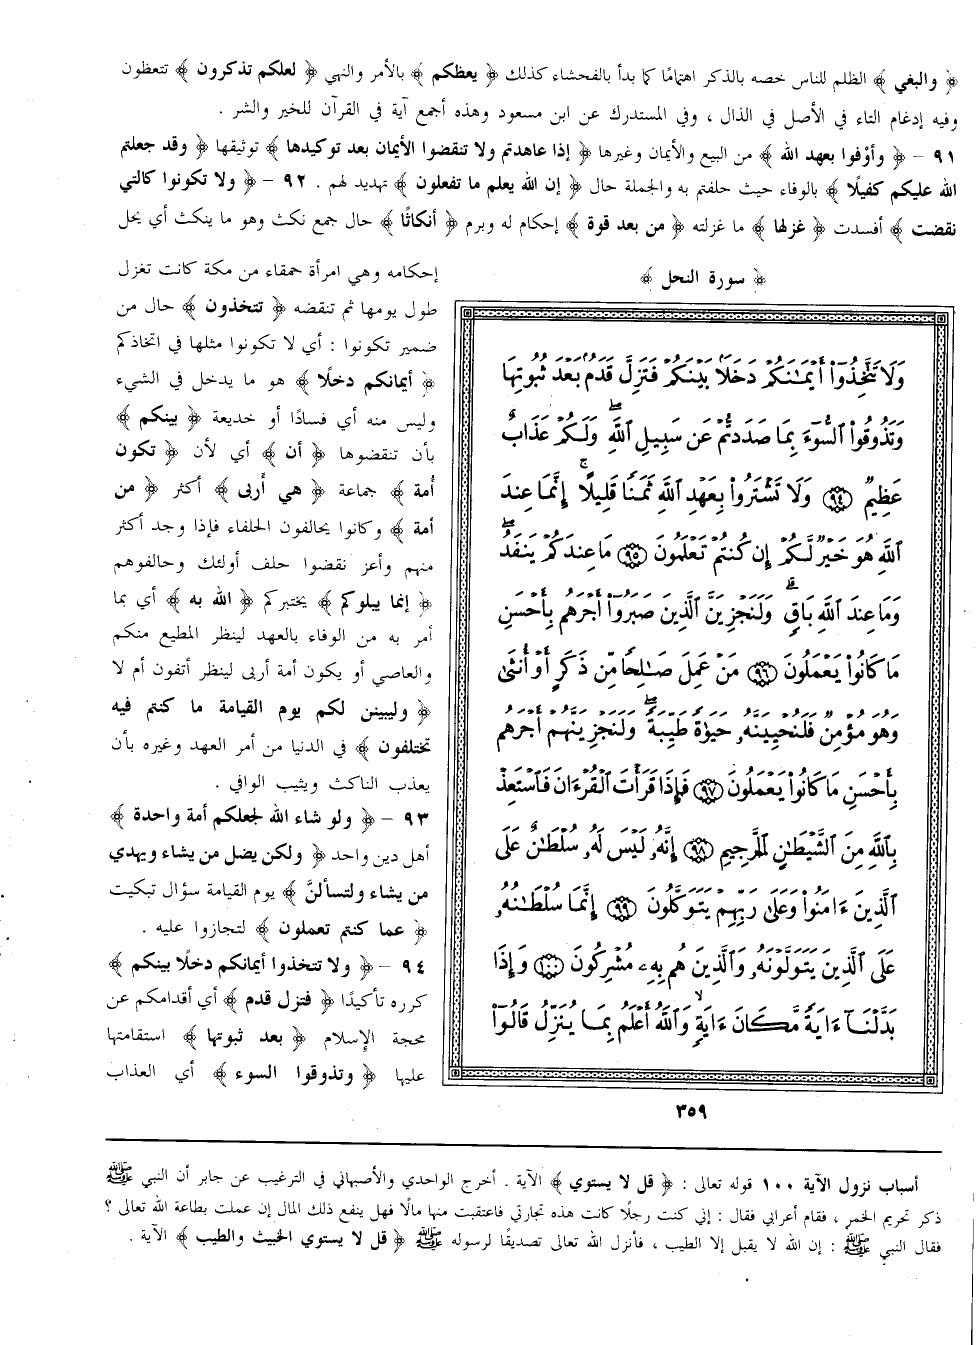 ﴿ والبغي ﴾ الظلم للناس خصه بالذكر اهتمامًا كما بدأ بالفحشاء كذلك ﴿ يعظكم ﴾ بالأمر والنهي ﴿ لعلكم تذكرون ﴾ تتعظون
وفيه إدغام التاء في الأصل في الذال ، وفي المستدرك عن ابن مسعود وهذه أجمع آية في القرآن للخير والشر .
٩١ - ﴿ وأوفوا بعهد الله ﴾ من البيع والأيمان وغيرها ﴿ إذا عاهدتم ولا تنقضوا الأيمان بعد توكيدها ﴾ توثيقها ﴿ وقد جعلتم
الله عليكم كفيلًا ﴾ بالوفاء حيث حلفتم به والجملة حال ﴿ إن الله يعلم ما تفعلون ﴾ تهديد لهم . ٩٢ - ﴿ ولا تكونوا كالتي
نقضت ﴾ أفسدت ﴿ غزلها ﴾ ما غزلته ﴿ من بعد قوة ﴾ إحكام له وبرم ﴿ أنكاثًا ﴾ حال جمع نكث وهو ما ينكث أي يحل
إحكامه وهي امرأة حمقاء من مكة كانت تغزل
طول يومها ثم تنقضه ﴿ تتخذون ﴾ حال من
ضمير تكونوا : أي لا تكونوا مثلها في اتخاذكم
﴿ أيمانكم دخلًا ﴾ هو ما يدخل في الشيء
وليس منه أي فسادًا أو خديعة ﴿ بينكم ﴾
بأن تنقضوها ﴿ أن ﴾ أي لأن ﴿ تكون
أمة ﴾ جماعة ﴿ هي أربى ﴾ أكثر ﴿ من
أمة ﴾ وكانوا يحالفون الحلفاء فإذا وجد أكثر
منهم وأعز نقضوا حلف أولئك وحالفوهم
﴿ إنما يبلوكم ﴾ يختبركم ﴿ الله به ﴾ أي بما
أمر به من الوفاء بالعهد لينظر المطيع منكم
والعاصي أو يكون أمة أربى لينظر أتفون أم لا
﴿ وليبينن لكم يوم القيامة ما كنتم فيه
تختلفون ﴾ في الدنيا من أمر العهد وغيره بأن
يعذب الناكث ويثيب الوافي .
٩٣ - ﴿ ولو شاء الله لجعلكم أمة واحدة ﴾
أهل دين واحد ﴿ ولكن يضل من يشاء ويهدي
من يشاء ولتسألنَّ ﴾ يوم القيامة سؤال تبكيت
﴿ عما كنتم تعملون ﴾ لتجازوا عليه .
٩٤ - ﴿ ولا تتخذوا أيمانكم دخلًا بينكم ﴾
كرره تأكيدًا ﴿ فتزل قدم ﴾ أي أقدامكم عن
محجة الإسلام ﴿ بعد ثبوتها ﴾ استقامتها
عليها ﴿ وتذوقوا السوء ﴾ أي العذاب
﴿ سورة النحل ﴾
وَلَا تَتَّخِذُوٓا۟ أَيْمَـٰنَكُمْ دَخَلًۢا بَيْنَكُمْ فَتَزِلَّ قَدَمٌۢ بَعْدَ ثُبُوتِهَا
وَتَذُوقُوا۟ ٱلسُّوٓءَ بِمَا صَدَدتُّمْ عَن سَبِيلِ ٱللَّهِ ۖ وَلَكُمْ عَذَابٌ
عَظِيمٌ ﴿٩٤﴾ وَلَا تَشْتَرُوا۟ بِعَهْدِ ٱللَّهِ ثَمَنًا قَلِيلًا ۚ إِنَّمَا عِندَ
ٱللَّهِ هُوَ خَيْرٌ لَّكُمْ إِن كُنتُمْ تَعْلَمُونَ ﴿٩٥﴾ مَا عِندَكُمْ يَنفَدُ ۖ
وَمَا عِندَ ٱللَّهِ بَاقٍ ۗ وَلَنَجْزِيَنَّ ٱلَّذِينَ صَبَرُوٓا۟ أَجْرَهُم بِأَحْسَنِ
مَا كَانُوا۟ يَعْمَلُونَ ﴿٩٦﴾ مَنْ عَمِلَ صَـٰلِحًا مِّن ذَكَرٍ أَوْ أُنثَىٰ
وَهُوَ مُؤْمِنٌ فَلَنُحْيِيَنَّهُۥ حَيَوٰةً طَيِّبَةً ۖ وَلَنَجْزِيَنَّهُمْ أَجْرَهُم
بِأَحْسَنِ مَا كَانُوا۟ يَعْمَلُونَ ﴿٩٧﴾ فَإِذَا قَرَأْتَ ٱلْقُرْءَانَ فَٱسْتَعِذْ
بِٱللَّهِ مِنَ ٱلشَّيْطَـٰنِ ٱلرَّجِيمِ ﴿٩٨﴾ إِنَّهُۥ لَيْسَ لَهُۥ سُلْطَـٰنٌ عَلَى
ٱلَّذِينَ ءَامَنُوا۟ وَعَلَىٰ رَبِّهِمْ يَتَوَكَّلُونَ ﴿٩٩﴾ إِنَّمَا سُلْطَـٰنُهُۥ
عَلَى ٱلَّذِينَ يَتَوَلَّوْنَهُۥ وَٱلَّذِينَ هُم بِهِۦ مُشْرِكُونَ ﴿١٠٠﴾ وَإِذَا
بَدَّلْنَآ ءَايَةً مَّكَانَ ءَايَةٍ ۙ وَٱللَّهُ أَعْلَمُ بِمَا يُنَزِّلُ قَالُوٓا۟
٣٥٩
أسباب نزول الآية ١٠٠ قوله تعالى : ﴿ قل لا يستوي ﴾ الآية . أخرج الواحدي والأصبهاني في الترغيب عن جابر أن النبي ﷺ
ذكر تحريم الخمر ، فقام أعرابي فقال : إني كنت رجلًا كانت هذه تجارتي فاعتقبت منها مالًا فهل ينفع ذلك المال إن عملت بطاعة الله تعالى ؟
فقال النبي ﷺ : إن الله لا يقبل إلا الطيب ، فأنزل الله تعالى تصديقًا لرسوله ﷺ ﴿ قل لا يستوي الخبيث والطيب ﴾ الآية .